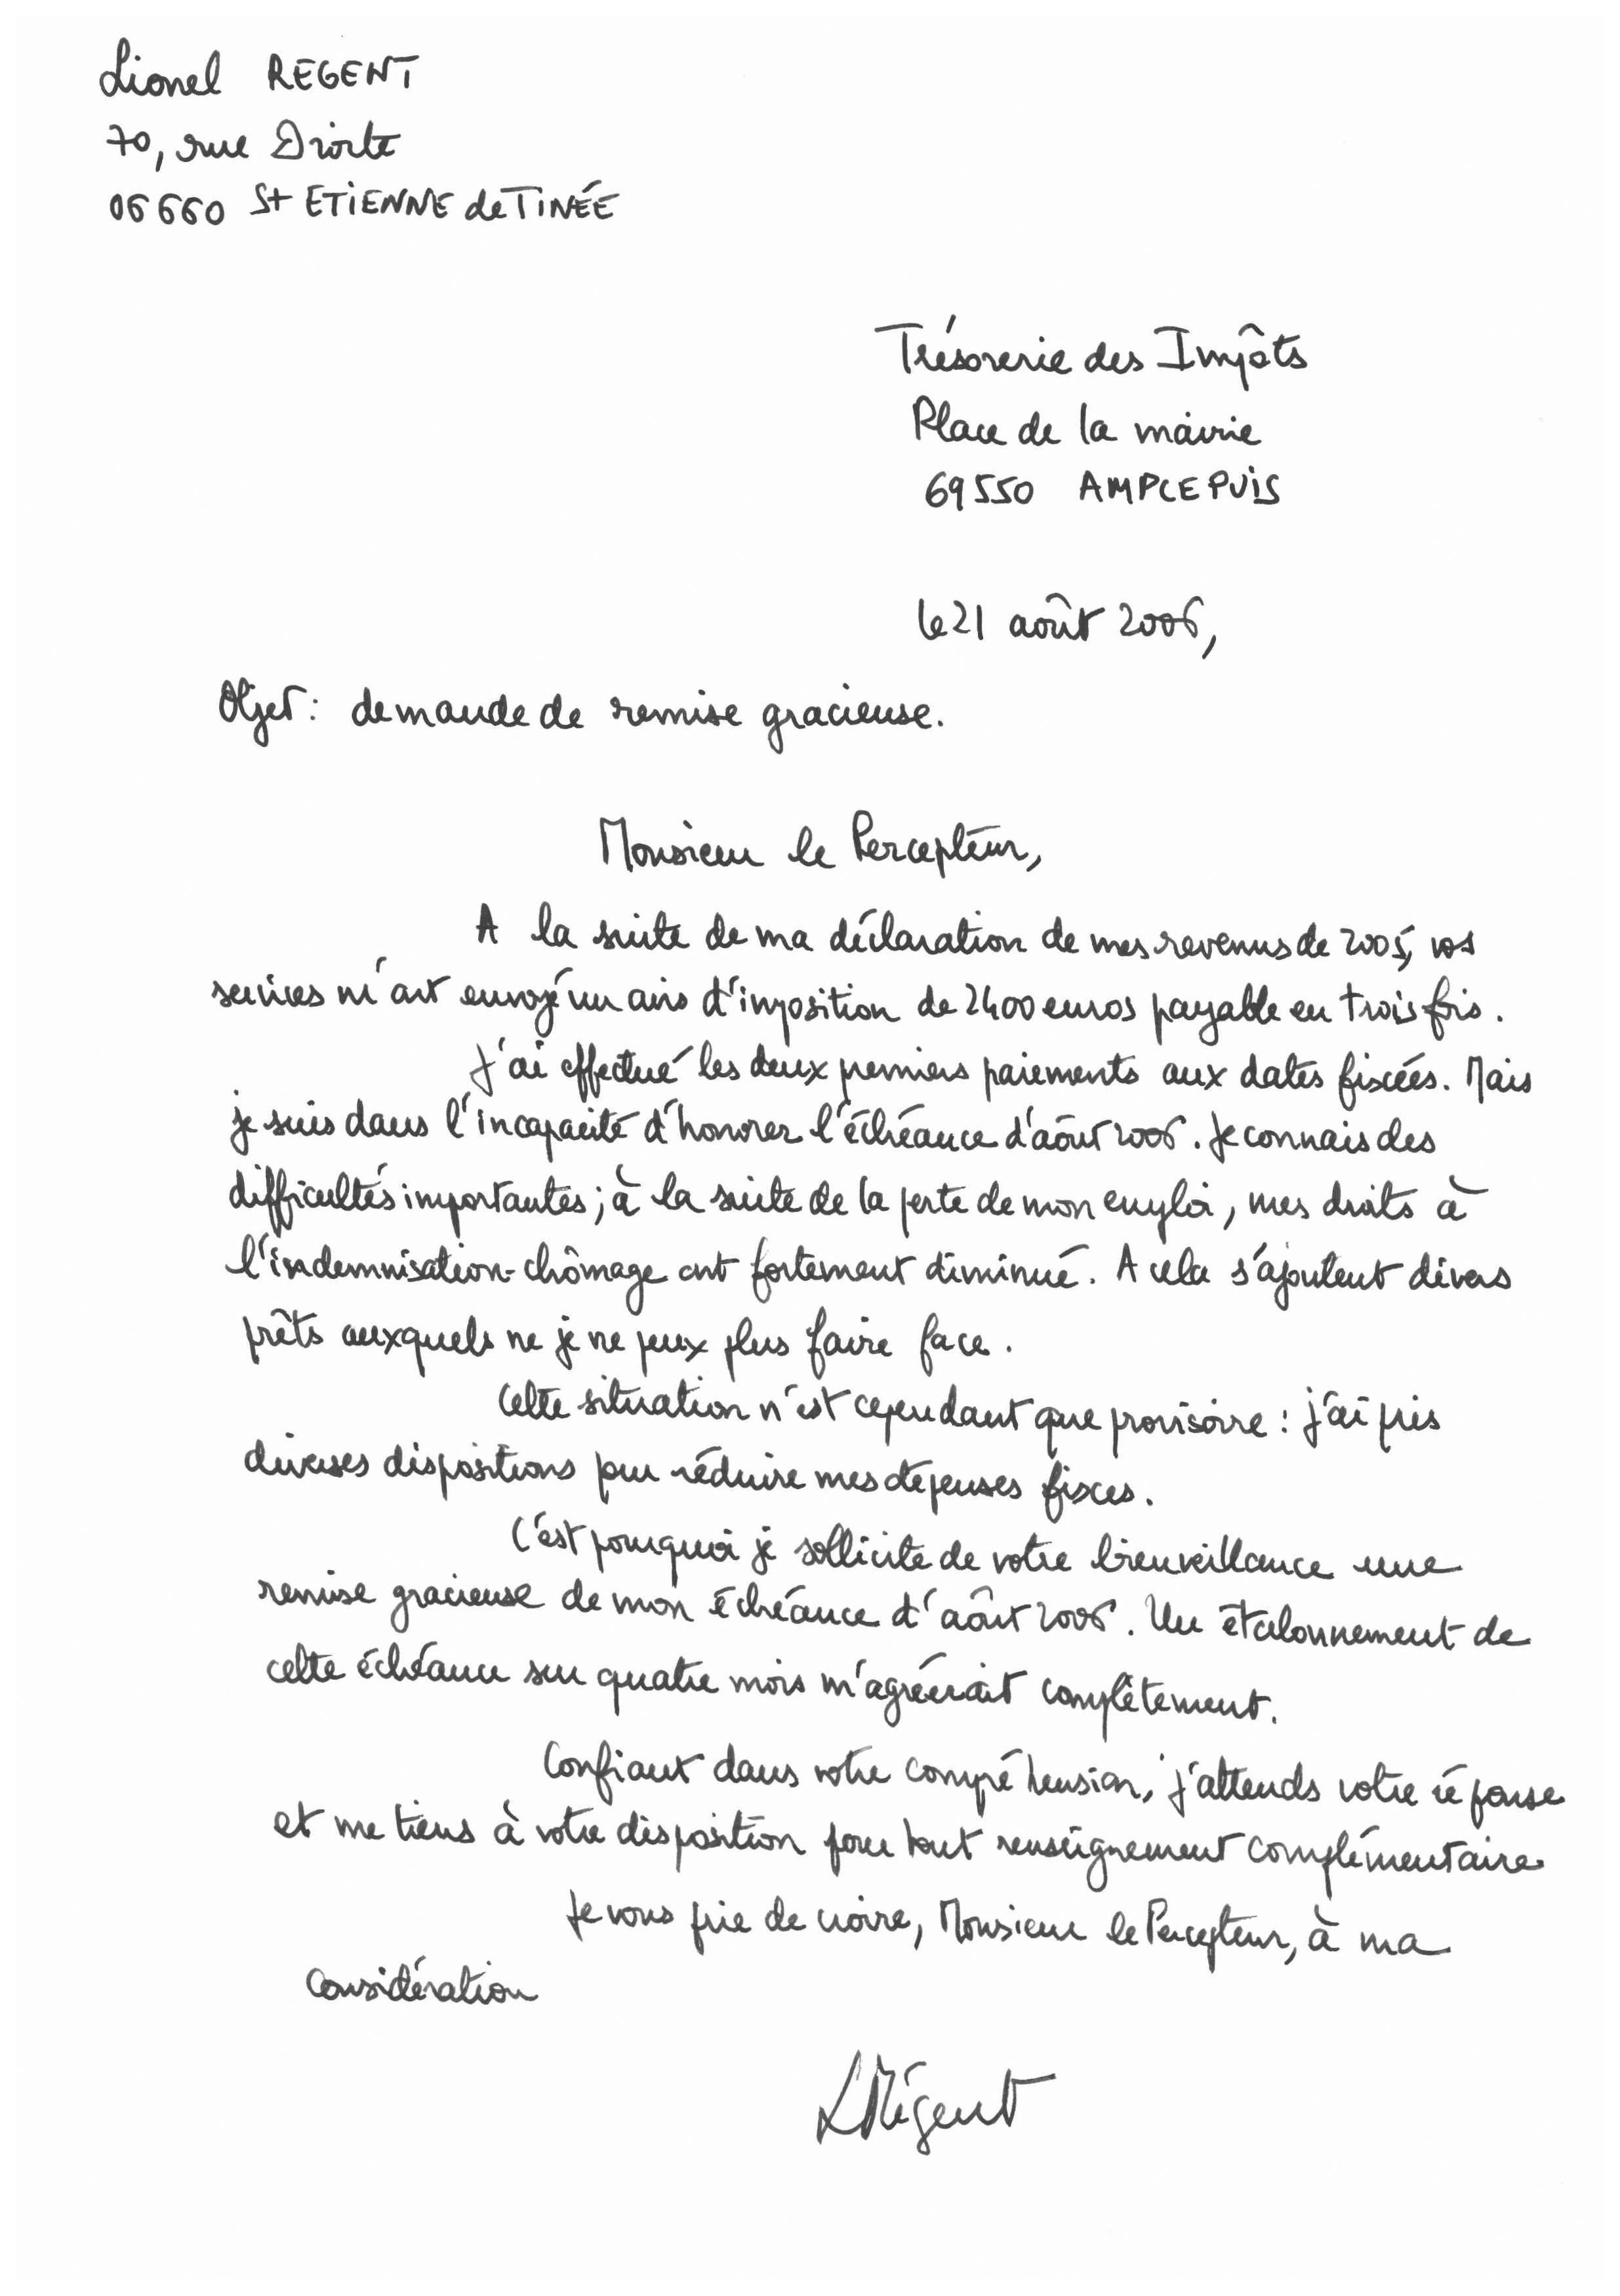 Lionel REGENT
70, rue Droite
06660 St ETIENNE de TINÉE
Trésorerie des Impôts
Place de la mairie
69550 AMPLEPUIS
le 21 août 2006,
Objet : demande de remise gracieuse.
Monsieur le Percepteur,
A la suite de ma déclaration de mes revenus de 2005, vos
services m'ont envoyé un avis d'imposition de 2400 euros payable en trois fois.
J'ai effectué les deux premiers paiements aux dates fixées. Mais
je suis dans l'incapacité d'honorer l'échéance d'août 2006. Je connais des
difficultés importantes ; à la suite de la perte de mon emploi, mes droits à
l'indemnisation-chômage ont fortement diminué. A cela s'ajoutent divers
prêts auxquels ne je ne peux plus faire face.
Cette situation n'est cependant que provisoire : j'ai pris
diverses dispositions pour réduire mes dépenses fixes.
C'est pourquoi je sollicite de votre bienveillance une
remise gracieuse de mon échéance d'août 2006. Un étalonnement de
cette échéance sur quatre mois m'agréerait complètement.
Confiant dans votre compréhension, j'attends votre réponse
et me tiens à votre disposition pour tout renseignement complémentaire
Je vous prie de croire, Monsieur le Percepteur, à ma
considération
LRégent